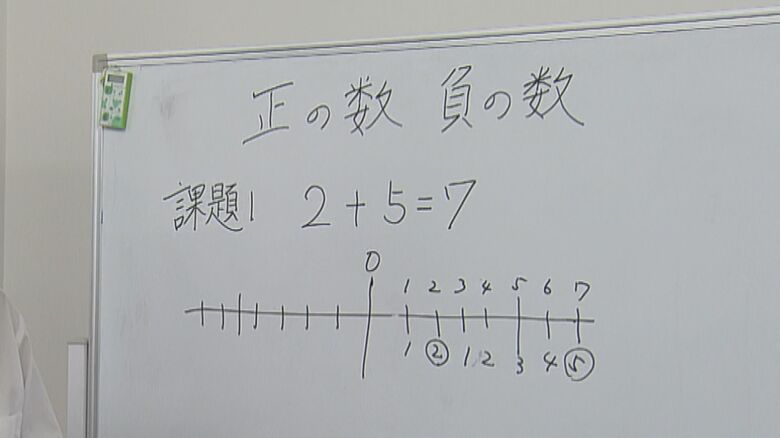 正の数 負の数
課題1 2+5=7
0
1 2 3 4 5 6 7
1 ② 1 2 3 4 ⑤